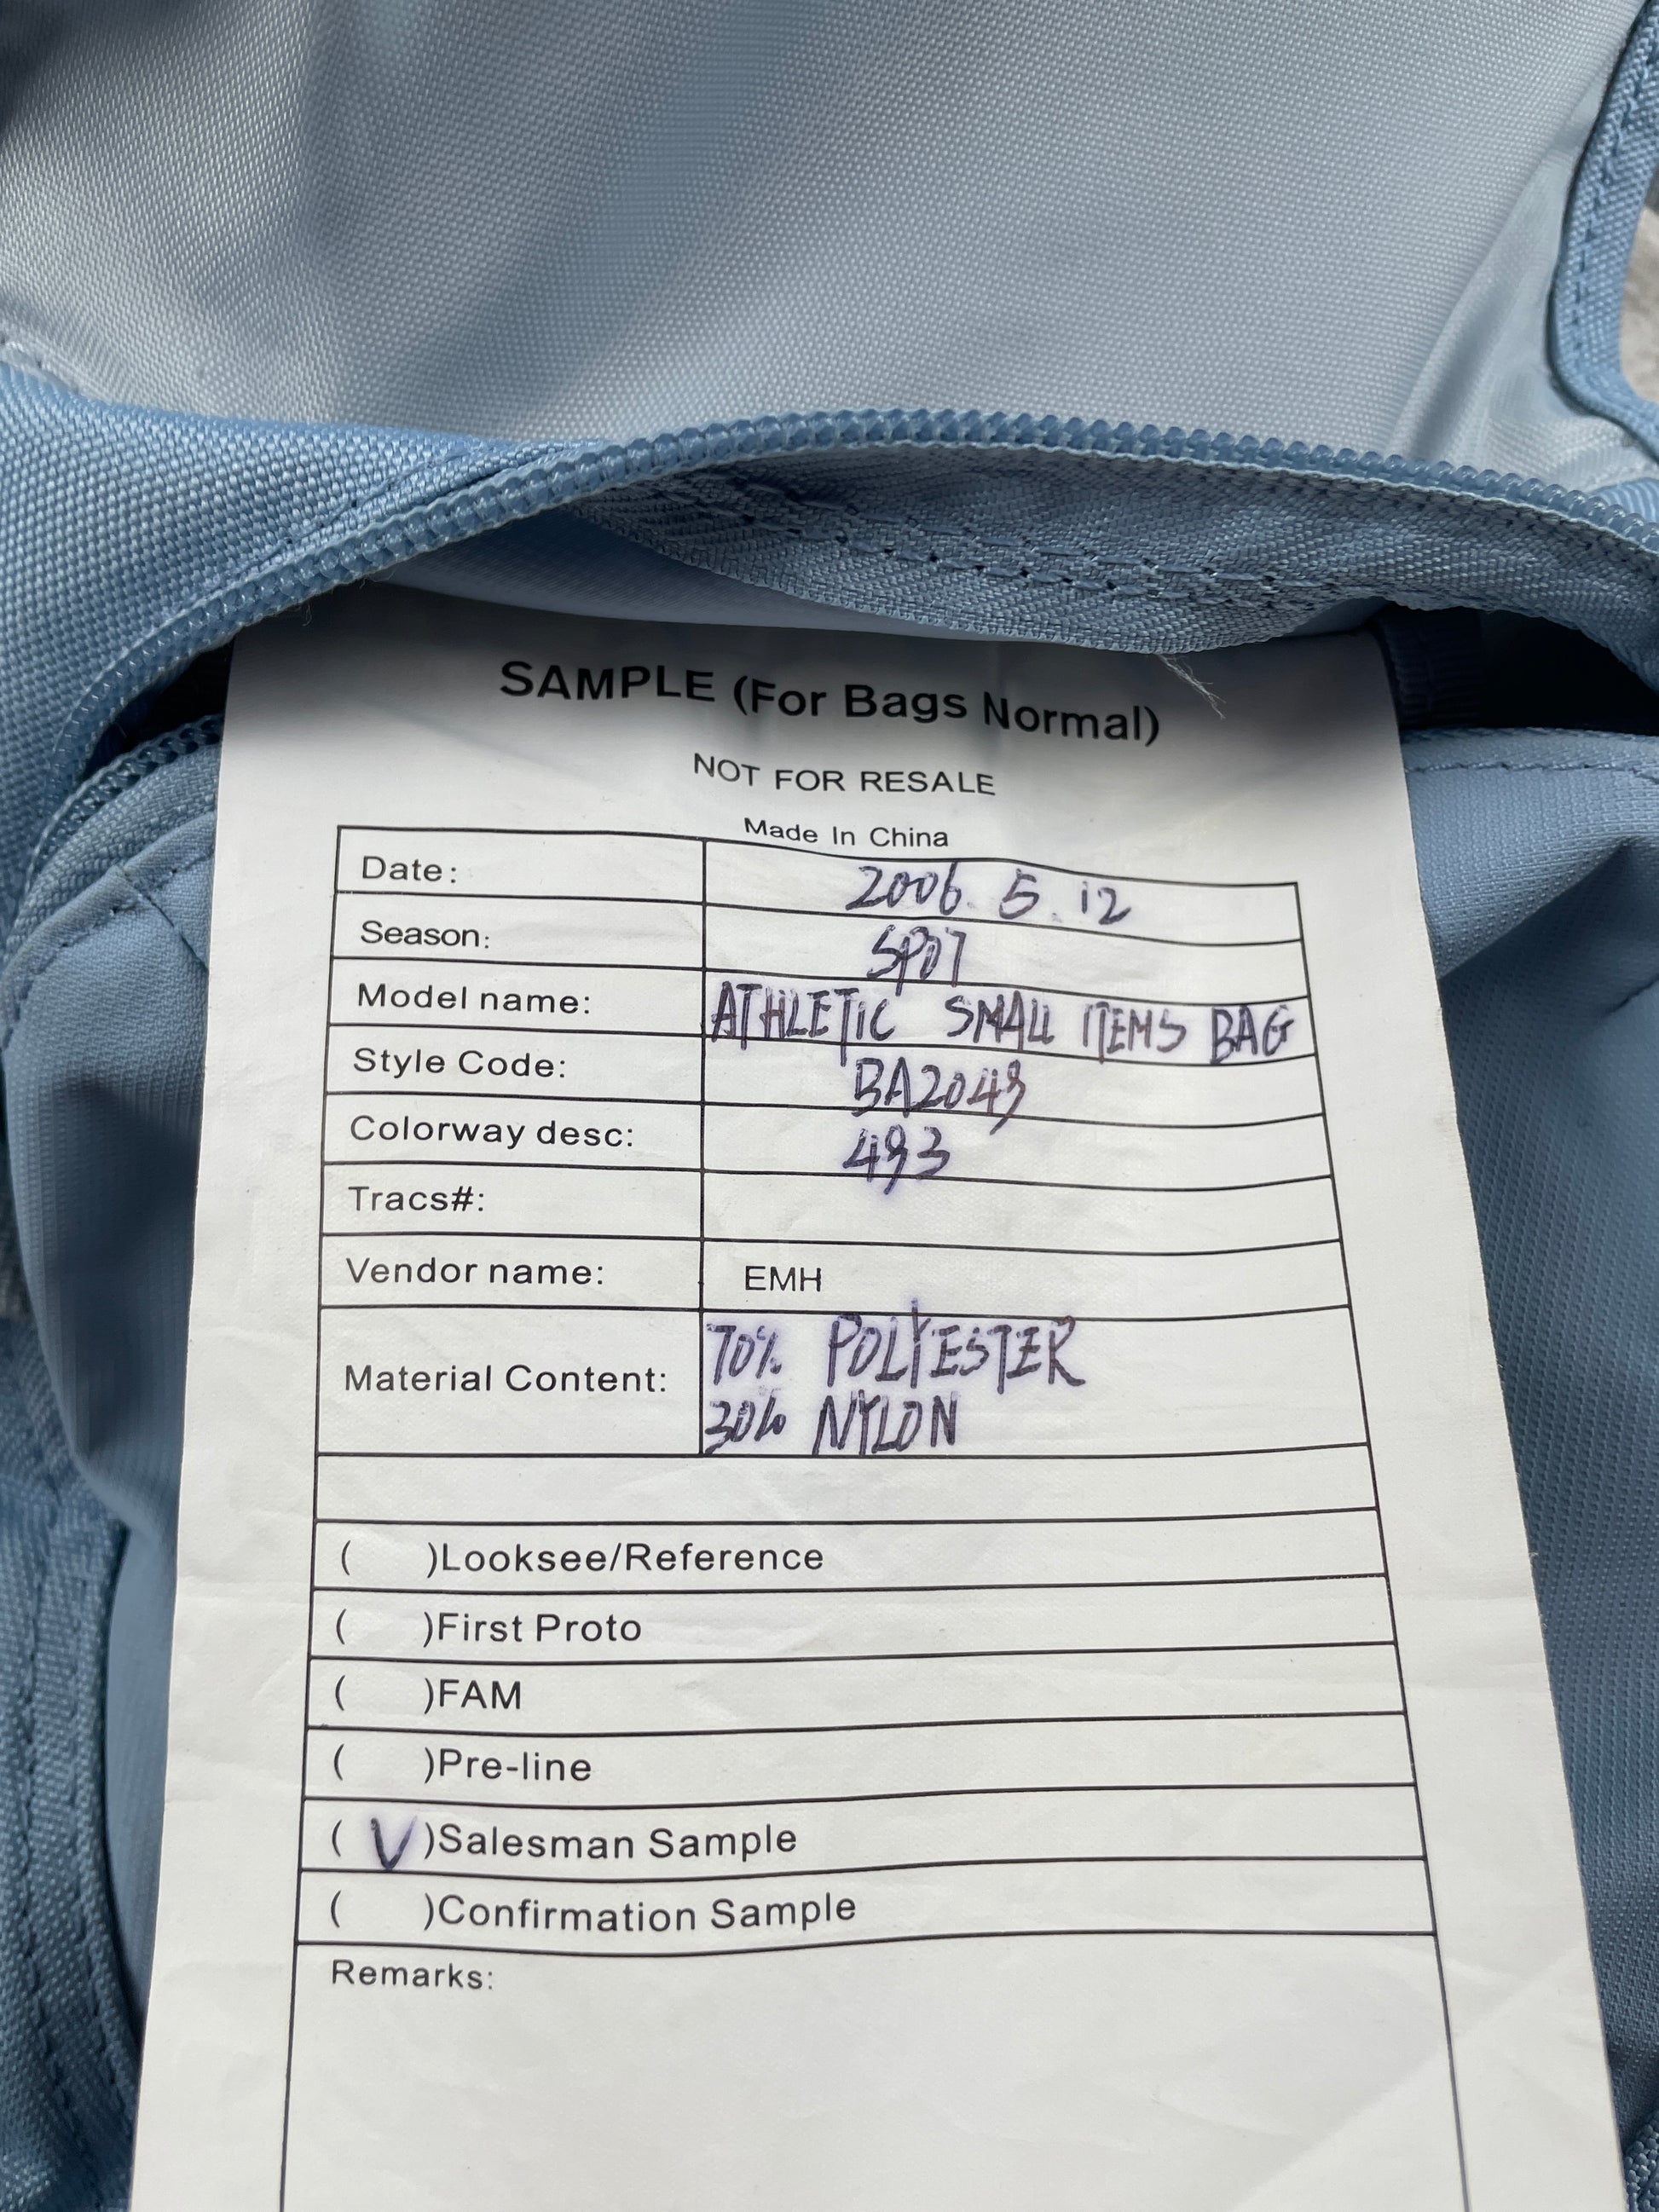 SAMPLE (For Bags Normal)
NOT FOR RESALE
Made In China
Date: 2006. 5. 12
Season: SP07
Model name: ATHLETIC SMALL ITEMS BAG
Style Code: BA2049
Colorway desc: 493
Tracs#:
Vendor name: EMH
Material Content: 70% POLYESTER
30% NYLON
( )Looksee/Reference
( )First Proto
( )FAM
( )Pre-line
( V )Salesman Sample
( )Confirmation Sample
Remarks: